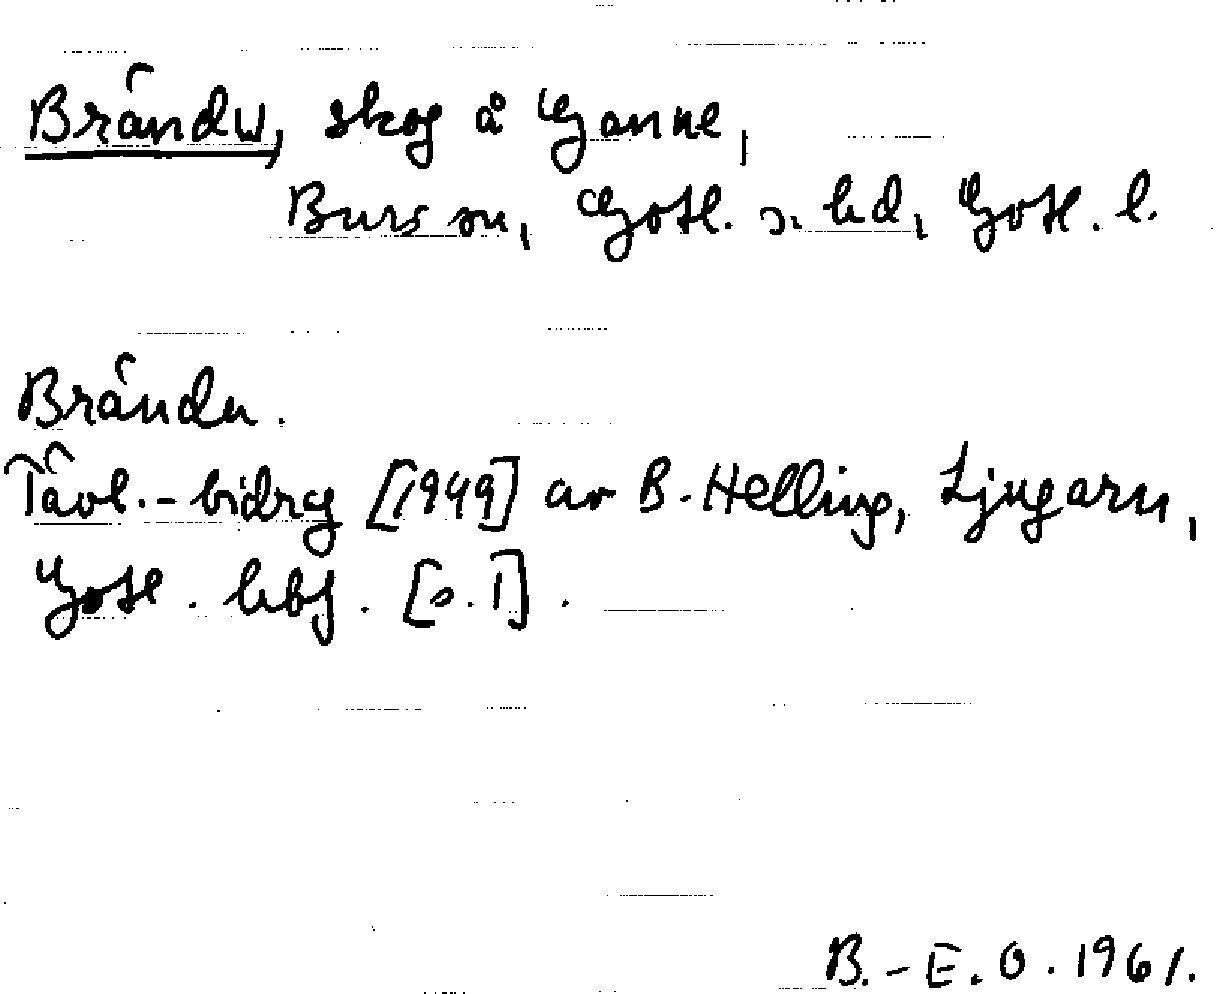 Brändu, skog å Ganne,
Burs sn, Gotl. s. hd, Gotl. l.
Brändu.
Tävl.-bidrag [1949] av B. Helling, Ljugarn,
Gotl. hbf. [s. 1].
B.-E. O. 1961.